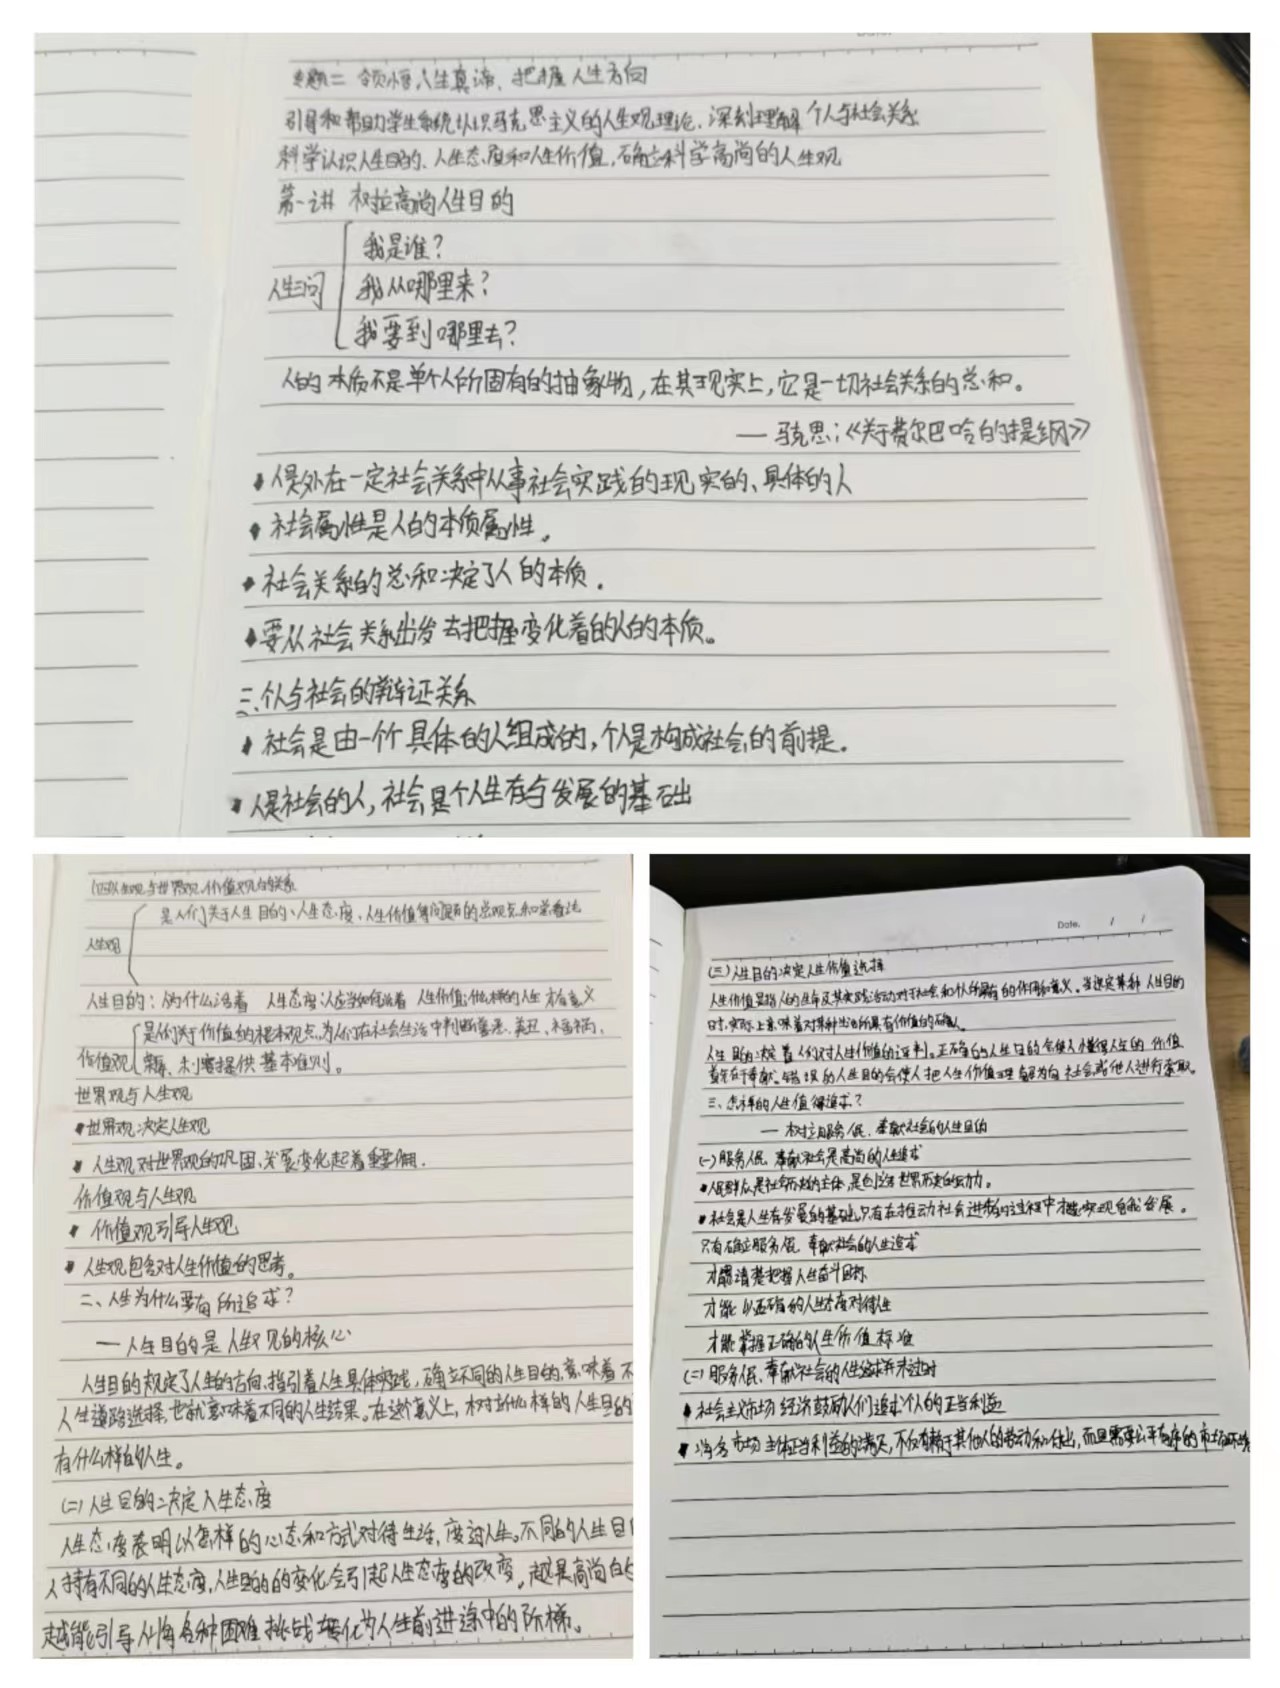 专题二 领悟人生真谛、把握人生方向
引导和帮助学生系统认识马克思主义的人生观理论、深刻理解个人与社会关系
科学认识人生目的、人生态度和人生价值,确立科学高尚的人生观
第一讲 树立高尚人生目的
人生三问
我是谁?
我从哪里来?
我要到哪里去?
人的本质不是单个人所固有的抽象物,在其现实上,它是一切社会关系的总和。
— 马克思:《关于费尔巴哈的提纲》
人是处在一定社会关系中从事社会实践的现实的、具体的人
社会属性是人的本质属性。
社会关系的总和决定了人的本质.
要从社会关系出发去把握变化着的人的本质。
三、个人与社会的辩证关系
社会是由一个个具体的人组成的,个人是构成社会的前提.
人是社会的人,社会是个人生存与发展的基础
(四)人生观与世界观、价值观的关系
人生观
是人们关于人生目的、人生态度、人生价值等问题的总观点和总看法
人生目的:人为什么活着 人生态度:人应当如何活着 人生价值:什么样的人生才有意义
价值观
是人们关于价值的根本观点,为人们在社会生活中判断善恶、美丑、福祸、
荣辱、利害提供基本准则。
世界观与人生观
世界观决定人生观
人生观对世界观的巩固、发展变化起着重要作用.
价值观与人生观
价值观引导人生观
人生观包含对人生价值的思考。
二、人生为什么要有所追求?
一 人生目的是人生观的核心
人生目的规定了人生的方向,指引着人生具体实践,确立不同的人生目的,意味着不
人生道路选择,也就意味着不同的人生结果。在这个意义上,树立什么样的人生目的
有什么样的人生。
(二)人生目的决定人生态度
人生态度表明以怎样的心态和方式对待生活,度过人生。不同的人生目
人持有不同的人生态度,人生目的的变化会引起人生态度的改变。越是高尚的
越能引导人将各种困难挑战转化为人生前进途中的阶梯。
Date. / /
(三)人生目的决定人生价值选择
人生价值是指人的生命及其实践活动对于社会和个人所具有的作用和意义。当选定某种人生目的
时,实际上意味着对某种生活所具有价值的确认。
人生目的决定着人们对人生价值的评判。正确的人生目的会使人懂得人生的价值
首先在于奉献。错误的人生目的会使人把人生价值理解为向社会或他人进行索取。
三、怎样的人生值得追求?
— 树立服务人民、奉献社会的人生目的
(一)服务人民、奉献社会是高尚的人生追求
人民群众是社会历史的主体,是创造世界历史的动力。
社会是人生存发展的基础,只有在推动社会进步的过程中才能实现自我发展。
只有确立服务人民、奉献社会的人生追求
才能清楚把握人生奋斗目标
才能以正确的人生态度对待人生
才能掌握正确的人生价值标准
(二)服务人民、奉献社会的人生追求并未过时
社会主义市场经济鼓励人们追求个人的正当利益
市场主体正当利益的满足,不仅有赖于其他人的劳动和付出,而且需要公平有序的市场环境